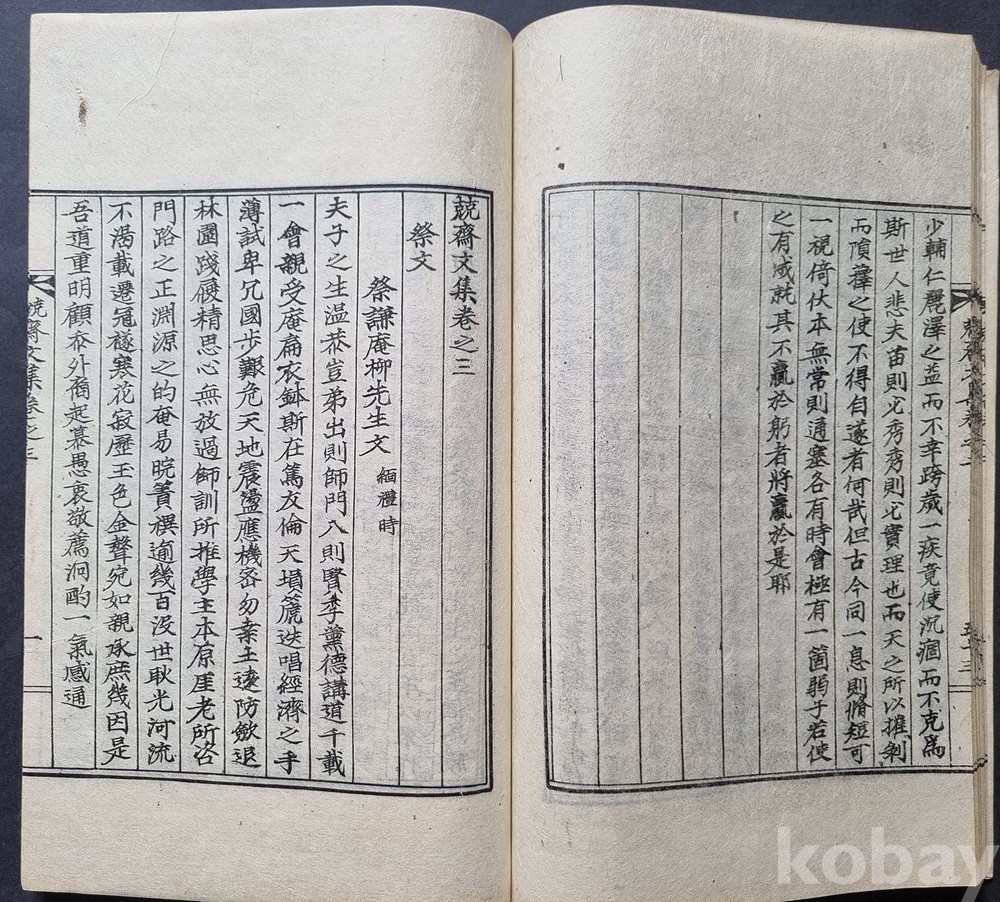 少輔仁麗澤之益而不幸跨歲一疾竟使沉痼而不克爲
斯世人悲夫苗則必秀秀則必實理也而天之所以摧剝
而隕蘀之使不得自遂者何哉但古今同一息則脩短可
一視倚伏本無常則通塞各有時會極有一箇弱子若使
之有成就其不贏於躬者將贏於是耶
五十三
兢齋文集卷之三
祭文
祭謙庵柳先生文 緬禮時
夫子之生溫恭豈弟出則師門入則賢季薰德講道千載
一會親受庵扁衣鉢斯在篤友倫天塤篪迭唱經濟之手
薄試卑冗國步艱危天地震盪應機密勿秉土逵防斂退
林園踐履精思心無放過師訓所推學主本原厓老所咨
門路之正淵源之的奄易晥簀禩逾幾百沒世耿光河流
不渴載遷冠襚寒花寂歷玉色金聲宛如親承庶幾因是
吾道重明顧忝外裔起慕愚衷敬薦泂酌一氣感通
兢齋文集卷之三
一
kobay